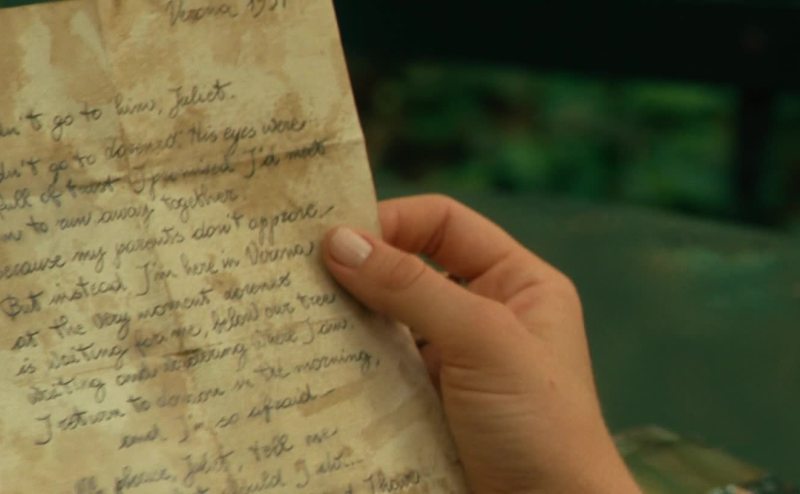 Verona 1957
didn't go to him, Juliet.
didn't go to Lorenzo. His eyes were
full of trust. I promised I'd meet
to run away together
because my parents don't approve
But instead I'm here in Verona
at the very moment Lorenzo
is waiting for me, below our tree
waiting and wondering where I am.
I return to London in the morning,
and I'm so afraid
please, Juliet, tell me
should I do...